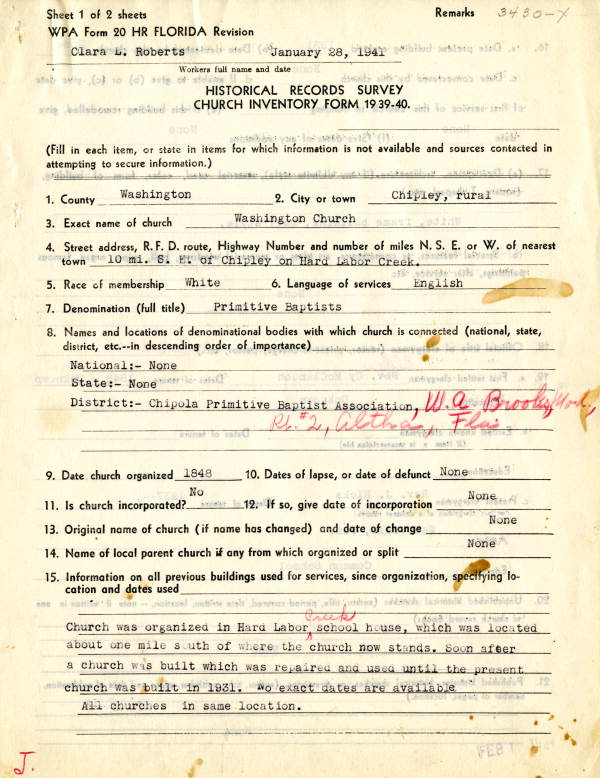 Sheet 1 of 2 sheets Remarks 3430-X
WPA Form 20 HR FLORIDA Revision
Clara L. Roberts January 28, 1941
Workers full name and date
HISTORICAL RECORDS SURVEY
CHURCH INVENTORY FORM 1939-40.
(Fill in each item, or state in items for which information is not available and sources contacted in
attempting to secure information.)
1. County Washington 2. City or town Chipley, rural
3. Exact name of church Washington Church
4. Street address, R. F. D. route, Highway Number and number of miles N. S. E. or W. of nearest
town 10 mi. S. E. of Chipley on Hard Labor Creek.
5. Race of membership White 6. Language of services English
7. Denomination (full title) Primitive Baptists
8. Names and locations of denominational bodies with which church is connected (national, state,
district, etc.--in descending order of importance)
National:- None
State:- None
District:- Chipola Primitive Baptist Association, W.A. Brooks, Mod.,
Rt. #2, Altha, Fla
9. Date church organized 1848 10. Dates of lapse, or date of defunct None
11. Is church incorporated? No 12. If so, give date of incorporation None
13. Original name of church (if name has changed) and date of change None
14. Name of local parent church if any from which organized or split None
15. Information on all previous buildings used for services, since organization, specifying lo-
cation and dates used
Creek
Church was organized in Hard Labor school house, which was located
about one mile south of where the church now stands. Soon after
a church was built which was repaired and used until the present
church was built in 1931. No exact dates are available
All churches in same location.
J.